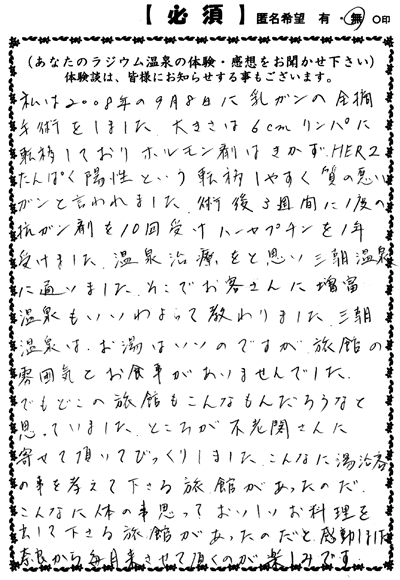 【必須】 匿名希望 有・無 ○印
（あなたのラジウム温泉の体験・感想をお聞かせ下さい）
体験談は、皆様にお知らせする事もございます。
私は2008年の9月8日に乳ガンの全摘
手術をしました 大きさは6cm リンパに
転移しており ホルモン剤はきかず、HER2
たんぱく陽性という転移しやすく質の悪い
ガンと言われました 術後3週間に1度の
抗ガン剤を10回受けハーセプチンを1年
受けました 温泉治療をと思い 三朝温泉
に通いました そこでお客さんに増富
温泉もいいわよって教わりました 三朝
温泉は お湯はいいのですが 旅館の
雰囲気とお食事があいませんでした
でもどこの旅館もこんなもんだろうなと
思っていました ところが 不老閣さんに
寄せて頂いてびっくりしました こんなに湯治客
の事を考えて下さる旅館があったのだ
こんなに体の事思っておいしいお料理を
出して下さる旅館があったのだと感動しました
奈良から毎月来させて頂くのが楽しみです